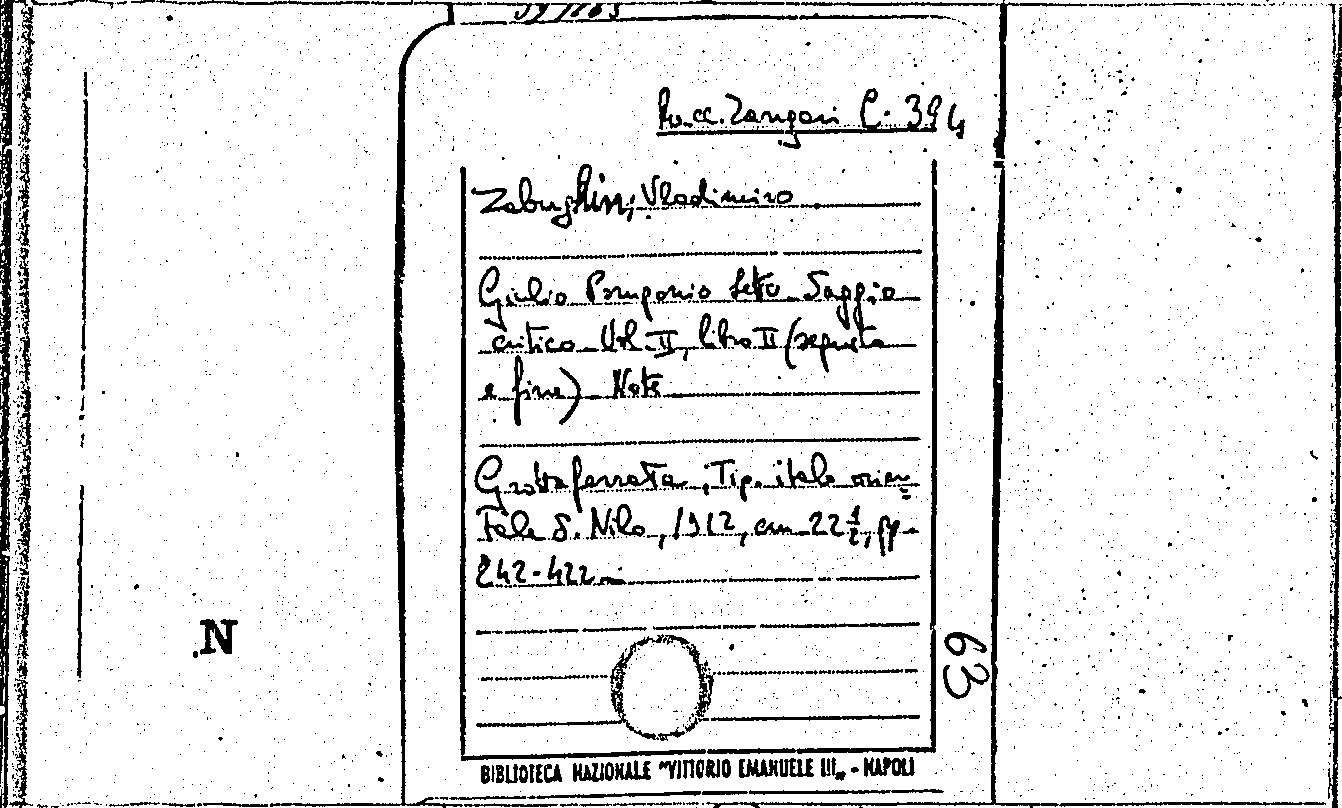 Racc. Zangari C. 394
Zabughin, Vladimiro
Giulio Pomponio Leto Saggio
critico Vol. II, libro II (seguito
e fine) Note
Grottaferrata, Tip. italo orien=
tale S. Nilo, 1912, cm 22 1/2, pp.
242-422
N
63
BIBLIOTECA NAZIONALE "VITTORIO EMANUELE III„ - NAPOLI